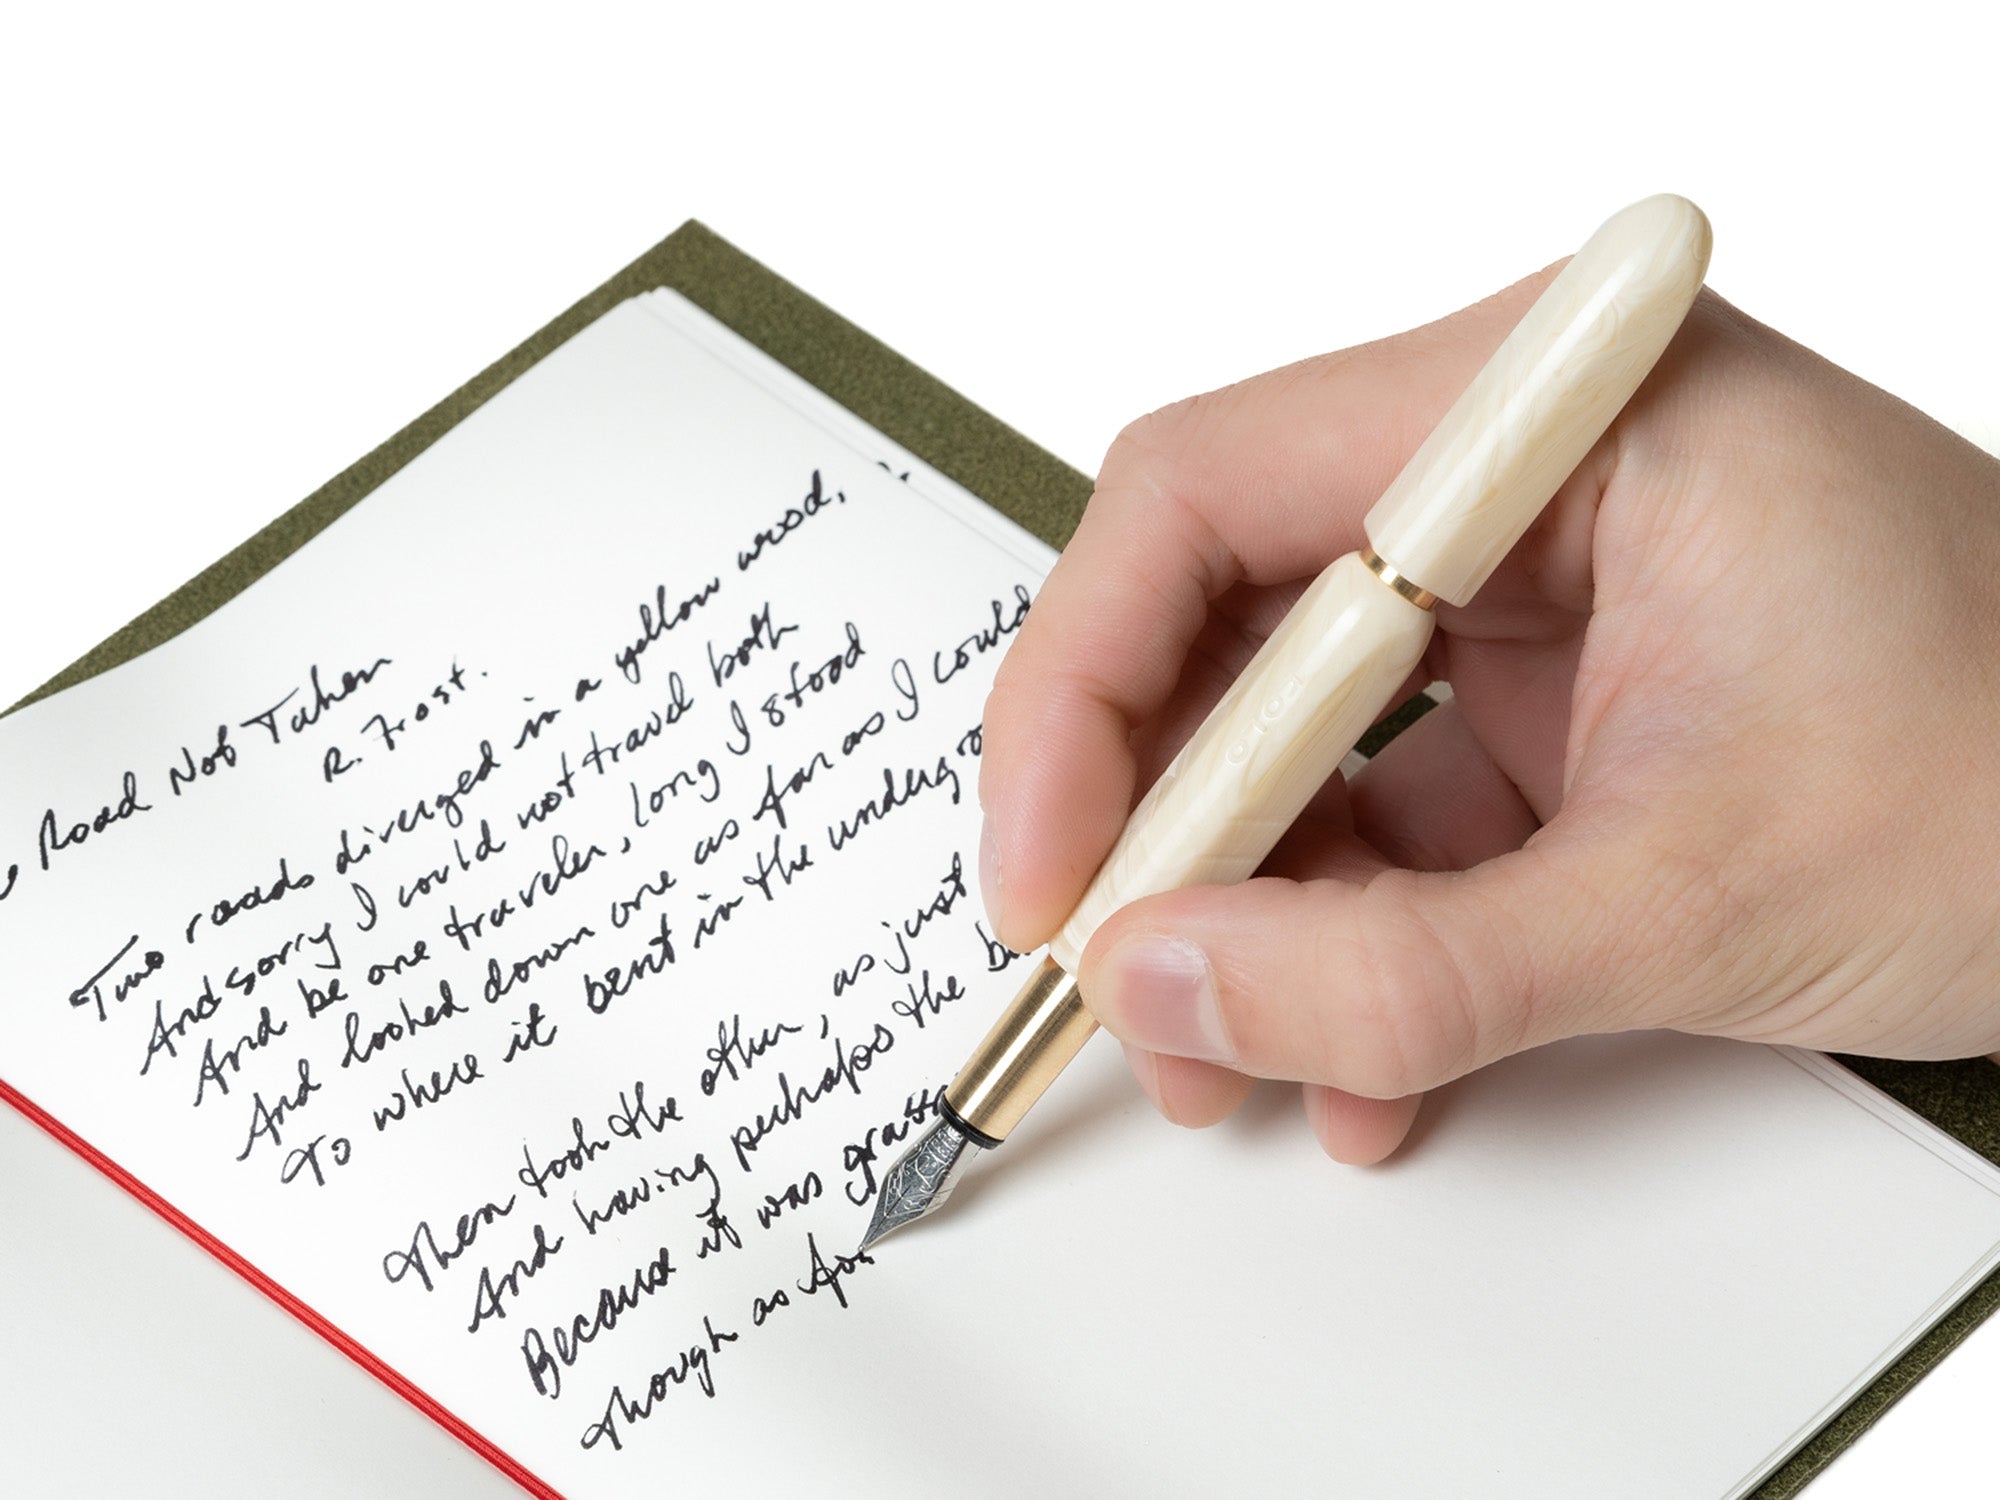 Road Not Taken
R. Frost.
Two roads diverged in a yellow wood,
And sorry I could not travel both
And be one traveler, long I stood
And looked down one as far as I could
To where it bent in the undergro
Then took the other, as just
And having perhaps the b
Because it was grass
Though as for
POLO